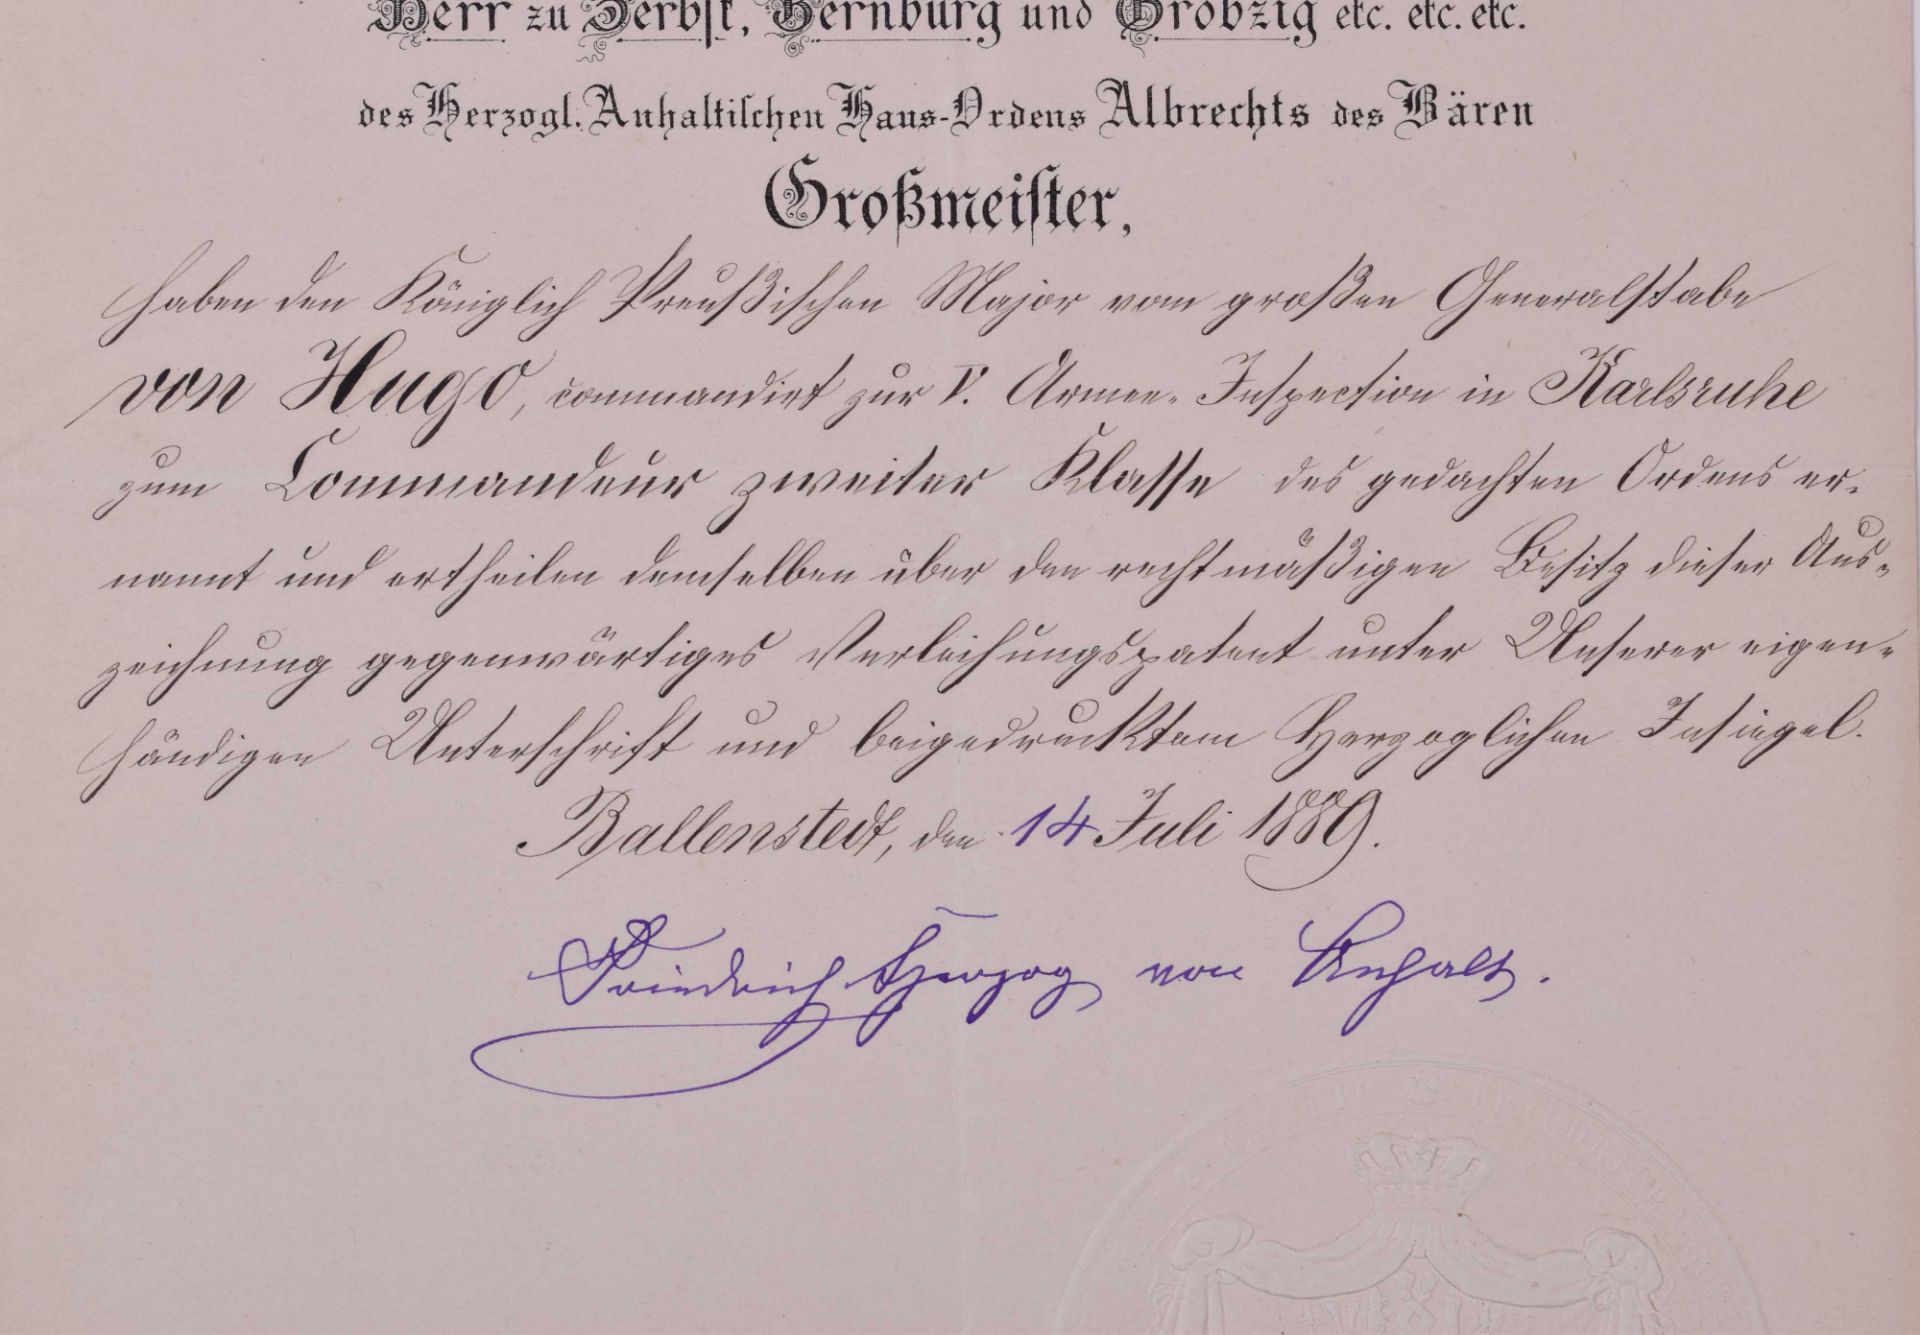 Herr zu Zerbst, Bernburg und Gröbzig etc. etc. etc.
des Herzogl. Anhaltischen Haus-Ordens Albrechts des Bären
Großmeister,
haben den Königlich Preußischen Major vom großen Generalstabe
von Hugo, commandirt zur V. Armee-Inspection in Karlsruhe
zum Commandeur zweiter Klasse des gedachten Ordens er-
nannt und ertheilen demselben über den rechtmäßigen Besitz dieser Aus-
zeichnung gegenwärtiges Verleihungspatent unter Unserer eigen-
händigen Unterschrift und beigedrucktem Herzoglichen Insiegel.
Ballenstedt, den 14 Juli 1889.
Friedrich Herzog von Anhalt.